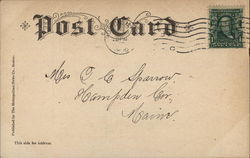 Post Card
Mrs C C Sparrow
Hampden Cor,
Maine
Published by The Metropolitan News Co., Boston
This side for Address